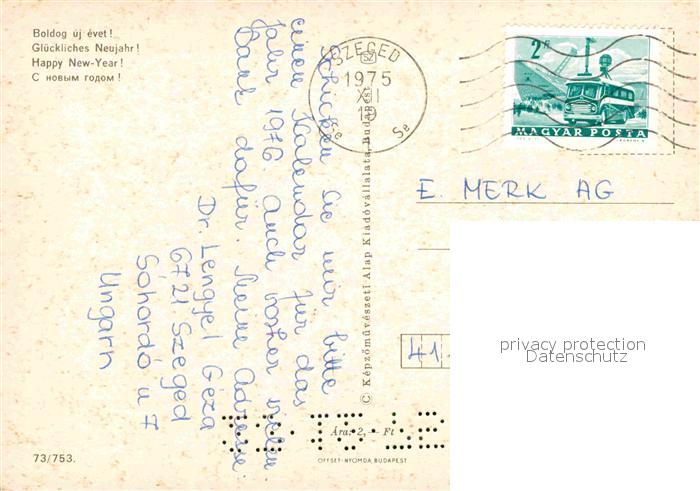 Boldog új évet!
Glückliches Neujahr!
Happy New-Year!
С новым годом!
Schicken Sie mir bitte
einen Kalendar für das
Jahr 1976. Auch vorher vielen
Dank dafür. Meine Adresse:
Dr. Lengyel Géza
6721 Szeged
Sóhordó u 7
Ungarn
© Képzőművészeti Alap Kiadóvállalata, Budapest
SZEGED
SZ
1975
XII
10
5e
2 Ft
MAGYAR POSTA
E. MERK AG
41
privacy protection
Datenschutz
Ára: 2,– Ft
OFFSET-NYOMDA, BUDAPEST
73/753.